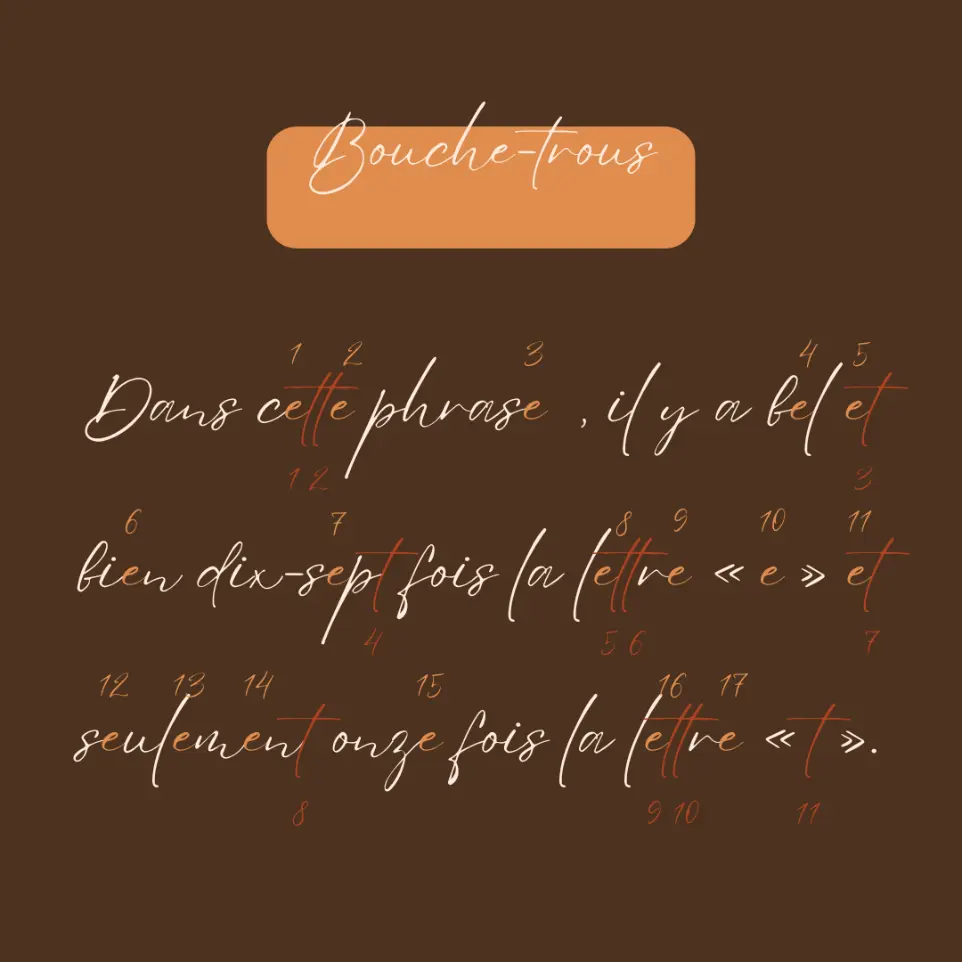 Bouche-trous
1 2 3 4 5
Dans cette phrase , il y a bel et
1 2 3
6 7 8 9 10 11
bien dix-sept fois la lettre « e » et
4 5 6 7
12 13 14 15 16 17
seulement onze fois la lettre « t ».
8 9 10 11